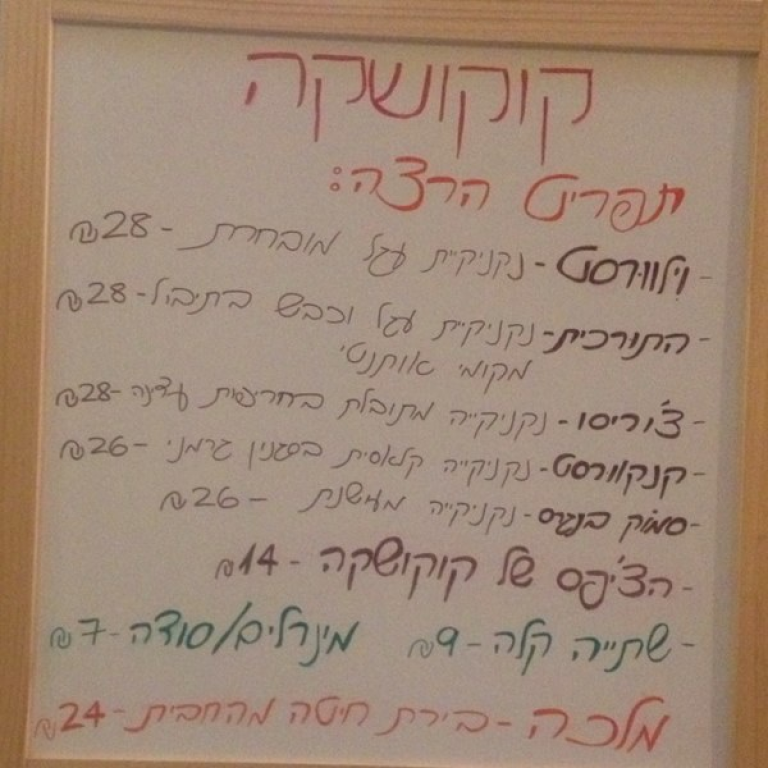 קוקושקה
תפריט הרצה:
- וילוורסט - נקניקיית עגל מובחרת - 28₪
- התורכית - נקניקיית עגל וכבש בתיבול - 28₪
מקומי אותנטי
- צ'וריסו - נקניקייה מתובלת בחריפות עדינה - 28₪
- קנקוורסט - נקניקייה קלאסית בסגנון גרמני - 26₪
- סמוק בנגס - נקניקייה מעושנת - 26₪
- הצ'יפס של קוקושקה - 14₪
- שתייה קלה - 9₪ מינרלים/סודה - 7₪
מלכה - בירת חיטה מהחבית - 24₪